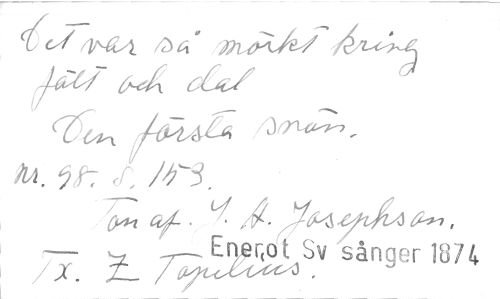 Det var så mörkt kring
fält och dal
Den första snön.
nr. 98. s. 153.
Ton af. J. A. Josephson.
Enerot Sv sånger 1874
Tx. Z Topelius.